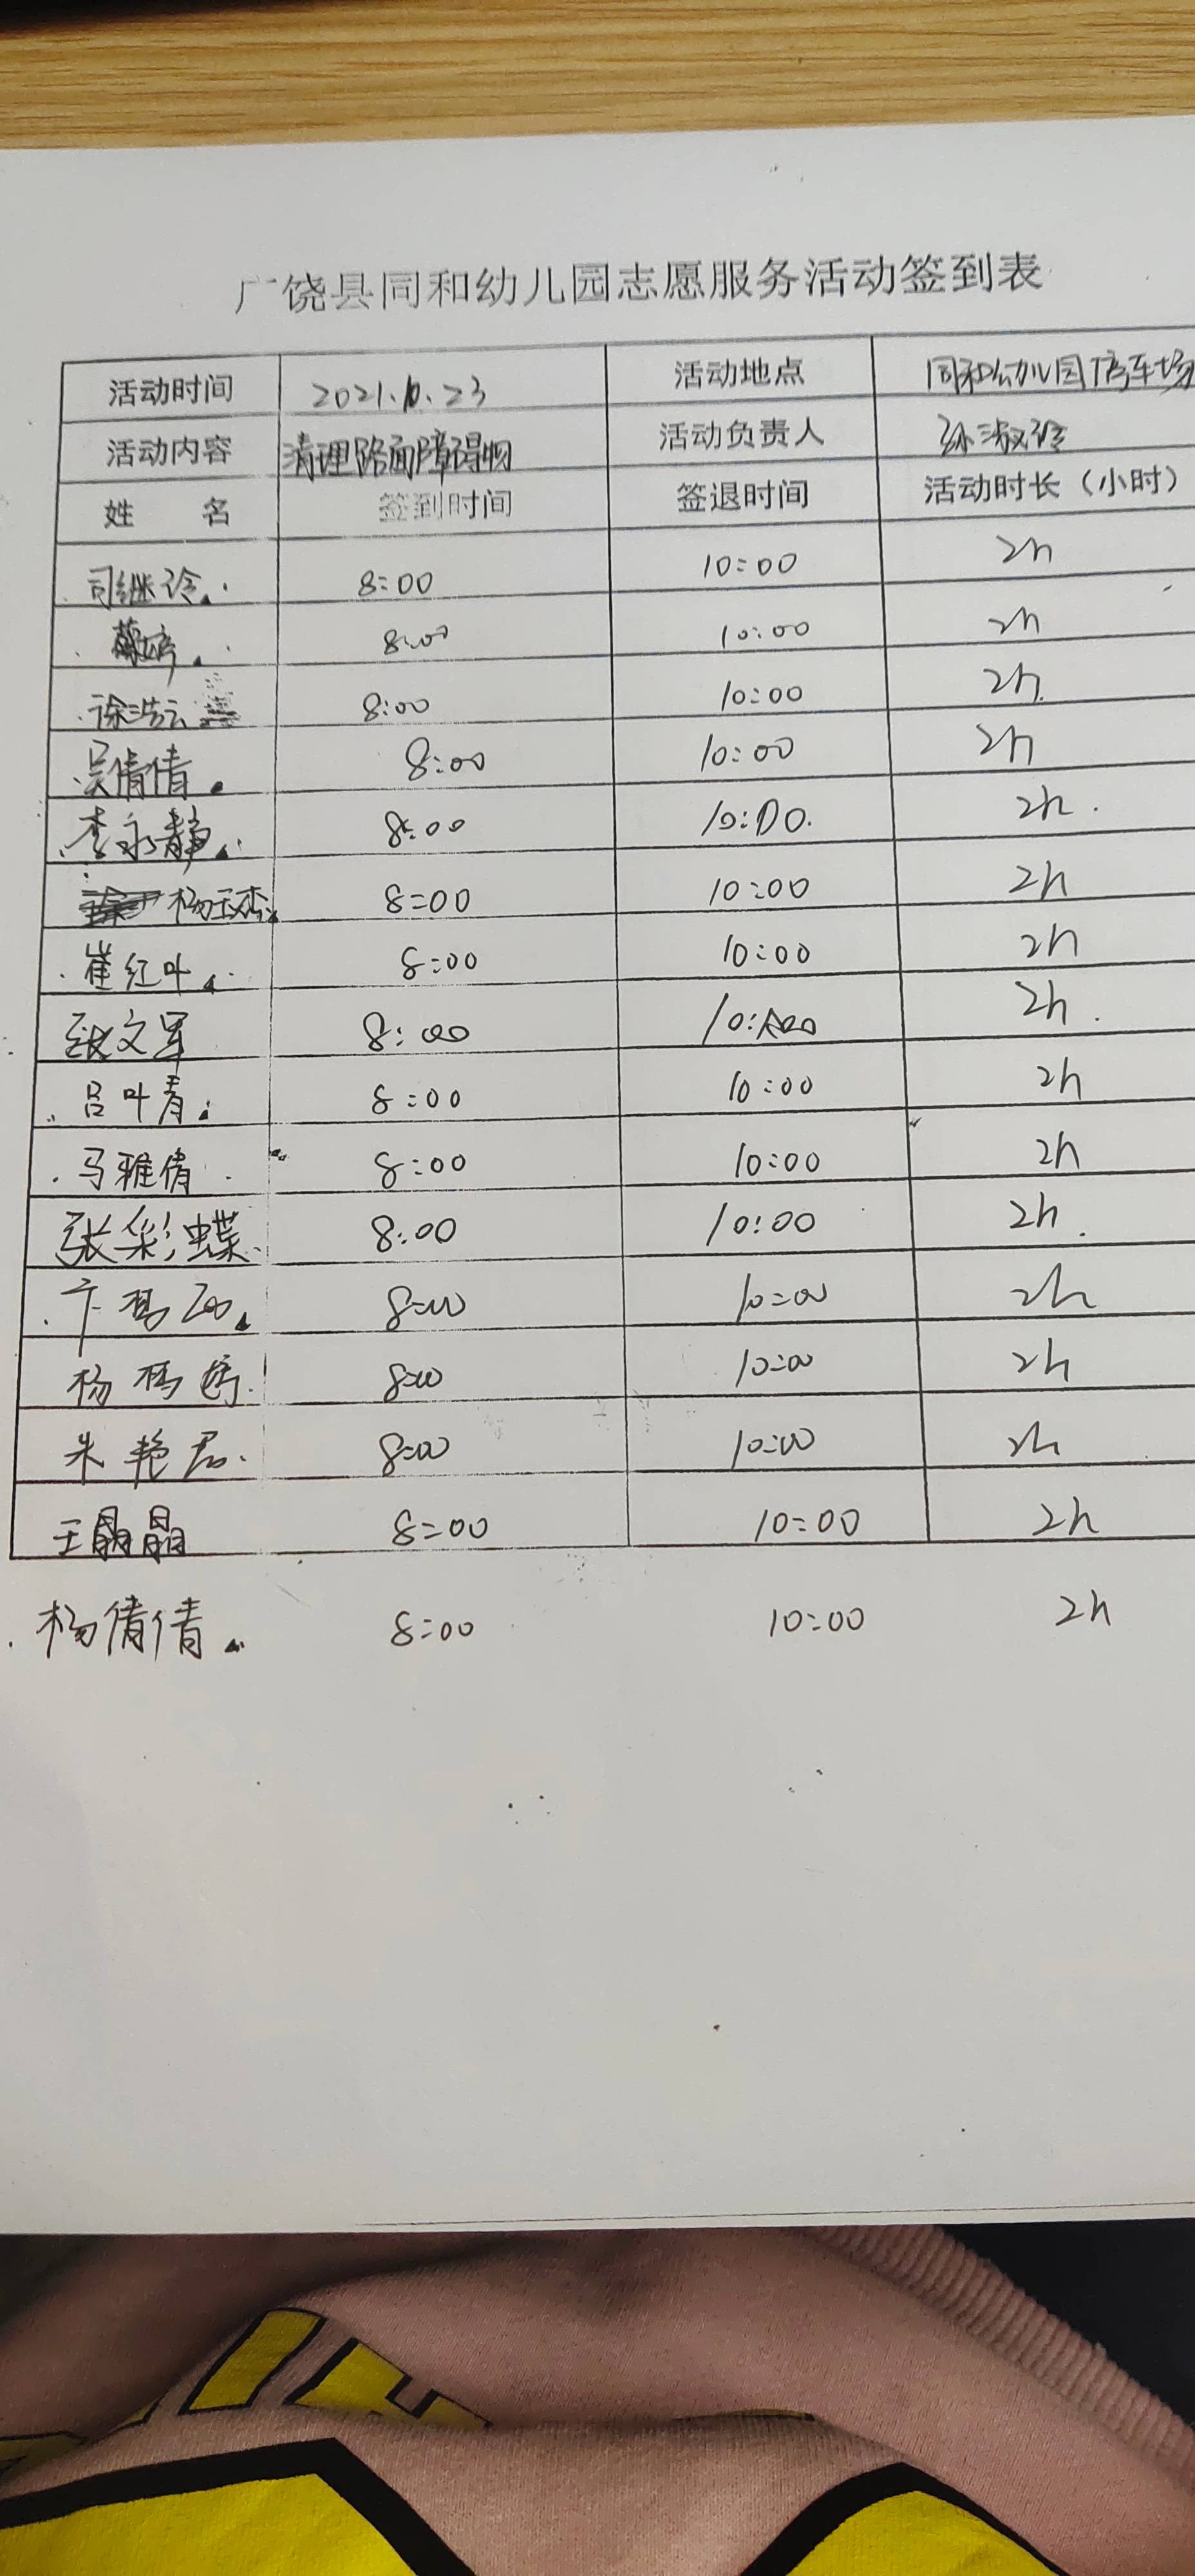 广饶县同和幼儿园志愿服务活动签到表
活动时间 2021.10.23 活动地点 同和幼儿园停车场
活动内容 清理路面障碍物 活动负责人 孙淑玲
姓 名 签到时间 签退时间 活动时长（小时）
司继玲 8:00 10:00 2h
8:00 10:00 2h
徐浩云 8:00 10:00 2h
吴倩倩 8:00 10:00 2h
李永静 8:00 10:00 2h
杨玉杰 8:00 10:00 2h
崔红叶 8:00 10:00 2h
文军 8:00 10:00 2h
吕叶青 8:00 10:00 2h
马雅倩 8:00 10:00 2h
张彩蝶 8:00 10:00 2h
8:00 10:00 2h
杨 8:00 10:00 2h
朱艳君 8:00 10:00 2h
王晶晶 8:00 10:00 2h
杨倩倩 8:00 10:00 2h